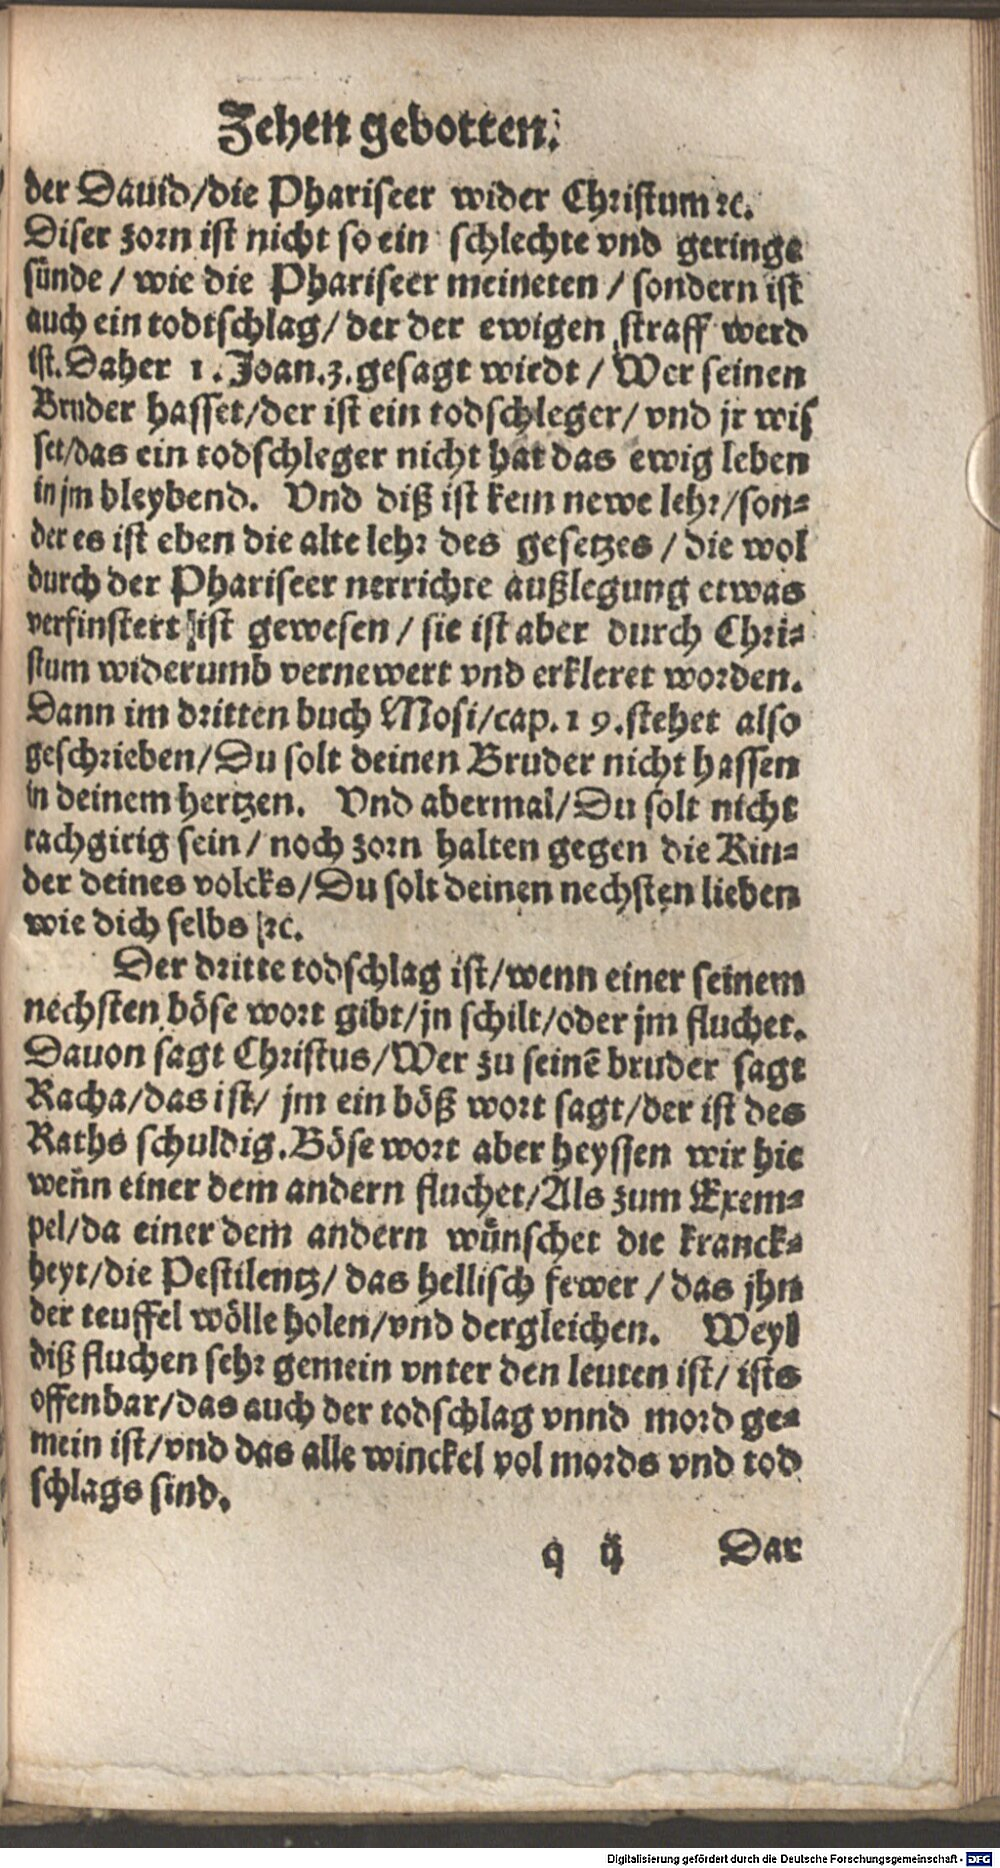 Zehen gebotten.
der Dauid/die Phariseer wider Christum ꝛc.
Diser zorn ist nicht so ein schlechte vnd geringe
sünde / wie die Phariseer meineten / sondern ist
auch ein todtschlag/ der der ewigen straff werd
ist. Daher 1. Joan.3.gesagt wirdt / Wer seinen
Bruder hasset/der ist ein todschleger/ vnd jr wis
set/das ein todschleger nicht hat das ewig leben
in jm bleybend. Vnd diß ist kein newe lehr/son-
der es ist eben die alte lehr des gesetzes / die wol
durch der Phariseer nerrichte außlegung etwas
verfinstert ist gewesen / sie ist aber durch Chri-
stum widerumb vernewert vnd erkleret worden.
Dann im dritten buch Mosi/cap.19.stehet also
geschrieben/Du solt deinen Bruder nicht hassen
in deinem hertzen. Vnd abermal/Du solt nicht
rachgirig sein / noch zorn halten gegen die Kin-
der deines volcks/Du solt deinen nechsten lieben
wie dich selbs ꝛc.
Der dritte todschlag ist/wenn einer seinem
nechsten böse wort gibt/jn schilt/oder jm fluchet.
Dauon sagt Christus/Wer zu seinē bruder sagt
Racha/das ist/ jm ein böß wort sagt/der ist des
Raths schuldig.Böse wort aber heyssen wir hie
wenn einer dem andern fluchet/Als zum Exem-
pel/da einer dem andern wünschet die kranck-
heyt/die Pestilentz/ das hellisch fewer / das jhn
der teuffel wölle holen/vnd dergleichen. Weyl
diß fluchen sehr gemein vnter den leuten ist/ ists
offenbar/das auch der todschlag vnnd mord ge-
mein ist/vnd das alle winckel vol mords vnd tod
schlags sind.
q ij Dar
Digitalisierung gefördert durch die Deutsche Forschungsgemeinschaft - DFG